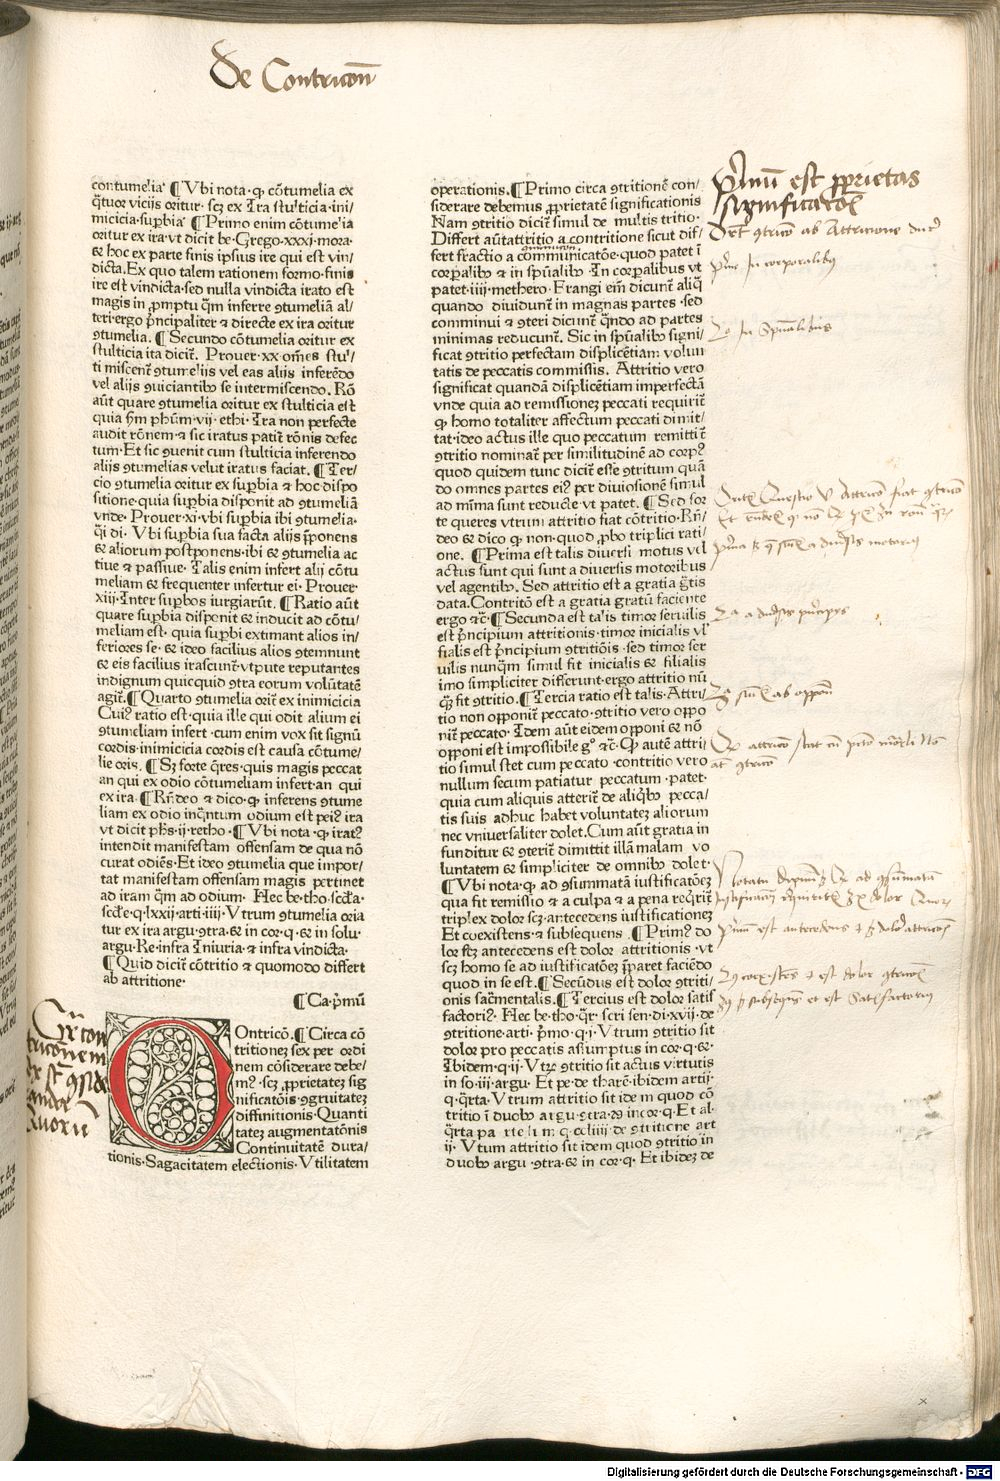 De Contricōn
contumelia ¶ Vbi nota · ꝙ cōtumelia ex
q̄tuor vicijs oritur · scꝫ ex Ira stulticia · ini/
micicia · suꝑbia ¶ Primo enim cōtumelia
oritur ex ira · vt dicit be · Grego · xxxj · mora ·
⁊ hoc ex parte finis ipsius ire qui est vin/
dicta. Ex quo talem rationem formo · finis
ire est vindicta · sed nulla vindicta irato est
magis in ꝓmptu q̄m inferre ꝯtumeliā al/
teri · ergo p̄ncipaliter ⁊ directe ex ira oritur
ꝯtumelia. ¶ Secundo cōtumelia oritur ex
stulticia ita dicit̄. Prouer · xx · om̄es stul/
ti miscent̄ ꝯtumelijs vel eas alijs inferēdo
vel alijs ꝯuiciantibꝰ se intermiscendo. Rō
aūt quare ꝯtumelia oritur ex stulticia est
quia h̄m phūm · vij · ethi · Ira non perfecte
audit rōnem · ⁊ sic iratus patit̄ rōnis defec
tum · Et sic ꝯuenit cum stulticia inferendo
alijs ꝯtumelias velut iratus faciat. ¶ Ter/
cio ꝯtumelia oritur ex suꝑbia ⁊ hoc dispo
sitione · quia suꝑbia disponit ad ꝯtumeliā
vnde · Prouer · xi · vbi suꝑbia ibi ꝯtumelia ·
q̄i di · Vbi suꝑbia sua facta alijs p̄ponens
⁊ aliorum postponens · ibi ⁊ ꝯtumelia ac
tiue ⁊ passiue · Talis enim infert alij cōtu
meliam ⁊ frequenter infertur ei · Prouer ·
xiij · Inter suꝑbos iurgiarūt. ¶ Ratio aūt
quare suꝑbia disponit ⁊ inducit ad cōtu/
meliam est · quia suꝑbi extimant alios in/
feriores se · ⁊ ideo facilius alios ꝯtemnunt
⁊ eis facilius irascunt̄ · vtpute reputantes
indignum quicquid ꝯtra eorum volūtatē
agit̄. ¶ Quarto ꝯtumelia orit̄ ex inimicicia
Cuiꝰ ratio est · quia ille qui odit alium ei
ꝯtumeliam infert · cum enim vox sit signū
cordis · inimicicia cordis est causa cōtume/
lie oris. ¶ Sꝫ forte q̄res · quis magis peccat
an qui ex odio cōtumeliam infert · an qui
ex ira · ¶ Rn̄deo ⁊ dico · ꝙ inferens ꝯtume
liam ex odio inq̄ntum odium est peiꝰ ira
vt dicit phs · ij · retho · ¶ Vbi nota · ꝙ iratꝰ
intendit manifestam offensam de qua nō
curat odiēs · Et ideo ꝯtumelia que impor/
tat manifestam offensam magis pertinet
ad iram q̄m ad odium · Hec be · tho · scd̄a ·
scd̄e · q · lxxij · arti · iiij · Vtrum ꝯtumelia oria
tur ex ira argu · ꝯtra · ⁊ in cor · q · ⁊ in solu ·
argu · Re · infra Iniuria · ⁊ infra vindicta ·
¶ Quid dicit̄ cōtritio ⁊ quomodo differt
ab attritione ·
¶ Ca · p̄mū
Ontricō. ¶ Circa cō
tritionez sex per ordi
nem cōsiderare debe/
mꝰ · scꝫ ꝓprietatez sig
nificatōis · ꝯgruitatez
diffinitionis · Quanti
tatez augmentatōnis
Continuitatē dura/
tionis · Sagacitatem electionis · Vtilitatem
operationis. ¶ Primo circa ꝯtritionē con/
siderare debemus ꝓprietatē significationis
Nam ꝯtritio dicit̄ simul de multis tritio ·
Differt aūt attritio a contritione sicut dif/
fert fractio a cōmunicatōe · quod patet ī
corꝑalibꝰ ⁊ in spūalibꝰ · In corꝑalibꝰ vt
patet · iiij · methero · Frangi em̄ dicunt̄ aliq̄
quando diuidunt̄ in magnas partes · sed
comminui ⁊ ꝯteri dicunt̄ qn̄do ad partes
minimas reducunt̄. Sic in spūalibꝰ signi/
ficat ꝯtritio perfectam displicētiam volun
tatis de peccatis commissis. Attritio vero
significat quandā displicētiam imperfectā
vnde quia ad remissionez peccati requirit̄
ꝙ homo totaliter affectum peccati dimit/
tat · ideo actus ille quo peccatum remittit̄
ꝯtritio nominat̄ per similitudinē ad corpꝰ
quod quidem tunc dicit̄ esse ꝯtritum quā
do omnes partes eiꝰ per diuisionem simul
ad mīma sunt reducte vt patet. ¶ Sed for
te queres vtrum attritio fiat cōtritio · Rn̄/
deo ⁊ dico ꝙ non · quod ꝓbo triplici rati/
one. ¶ Prima est talis diuersi motus vel
actus sunt qui sunt a diuersis motoribus
vel agentibꝰ. Sed attritio est a gratia gr̄tis
data. Contritō est a gratia gratū faciente
ergo ⁊c̄ · ¶ Secunda est talis timor seruilis
est p̄ncipium attritionis · timor inicialis vl̄
filialis est p̄ncipium ꝯtritiōis · sed timor ser
uilis nunq̄m simul fit inicialis ⁊ filialis
imo simpliciter differunt · ergo attritio nū
q̄ꝫ fit ꝯtritio. ¶ Tercia ratio est talis · Attri/
tio non opponit̄ peccato · ꝯtritio vero oppo
nit̄ peccato · Idem aūt eidem opponi ⁊ nō
opponi est impossibile gº ⁊c̄ · Ꝙ autē attri/
tio simul stet cum peccato · contritio vero
nullum secum patiatur peccatum · patet ·
quia cum aliquis atterit̄ de aliq̄bꝰ pecca/
tis suis adhuc habet voluntatez aliorum
nec vniuersaliter dolet. Cum aūt gratia in
funditur ⁊ ꝯterit̄ dimittit illā malam vo
luntatem ⁊ simpliciter de omnibꝰ dolet ·
¶ Vbi nota · ꝙ ad ꝯsummatā iustificatōez
qua fit remissio ⁊ a culpa ⁊ a pena req̄rit̄
triplex dolor scꝫ · antecedens iustificationez
Et coexistens · ⁊ subsequens . ¶ Primꝰ do
lor scꝫ antecedens est dolor attritionis · vt
scꝫ homo se ad iustificatōez p̄paret faciēdo
quod in se est. ¶ Secūdus est dolor ꝯtriti/
onis sacr̄mentalis. ¶ Tercius est dolor satis
factoriꝰ. Hec be · tho · q̄r · scri sen · di · xvij · de
ꝯtritione · arti · p̄mo · q · j · Vtrum ꝯtritio sit
dolor pro peccatis assumptus in cor · q · ⁊ ·
Ibidem · q · ij · Vtꝝ ꝯtritio sit actus virtutis
in so · iij · argu · Et pe · de tharē · ibidem arti · j
q · q̄rta · Vtrum attritio sit idem quod cō
tritio ī duobꝰ argu · ꝯtra · ⁊ in cor · q · Et al ·
q̄rta parte li m · q · ccliiij · de ꝯtritione art
ij · Vtum attritio sit idem quod ꝯtritio in
duobꝰ argu · ꝯtra · ⁊ in cor · q · Et ibidez de
Primū est ꝓprietas
significatōis
Digitalisierung gefördert durch die Deutsche Forschungsgemeinschaft - DFG